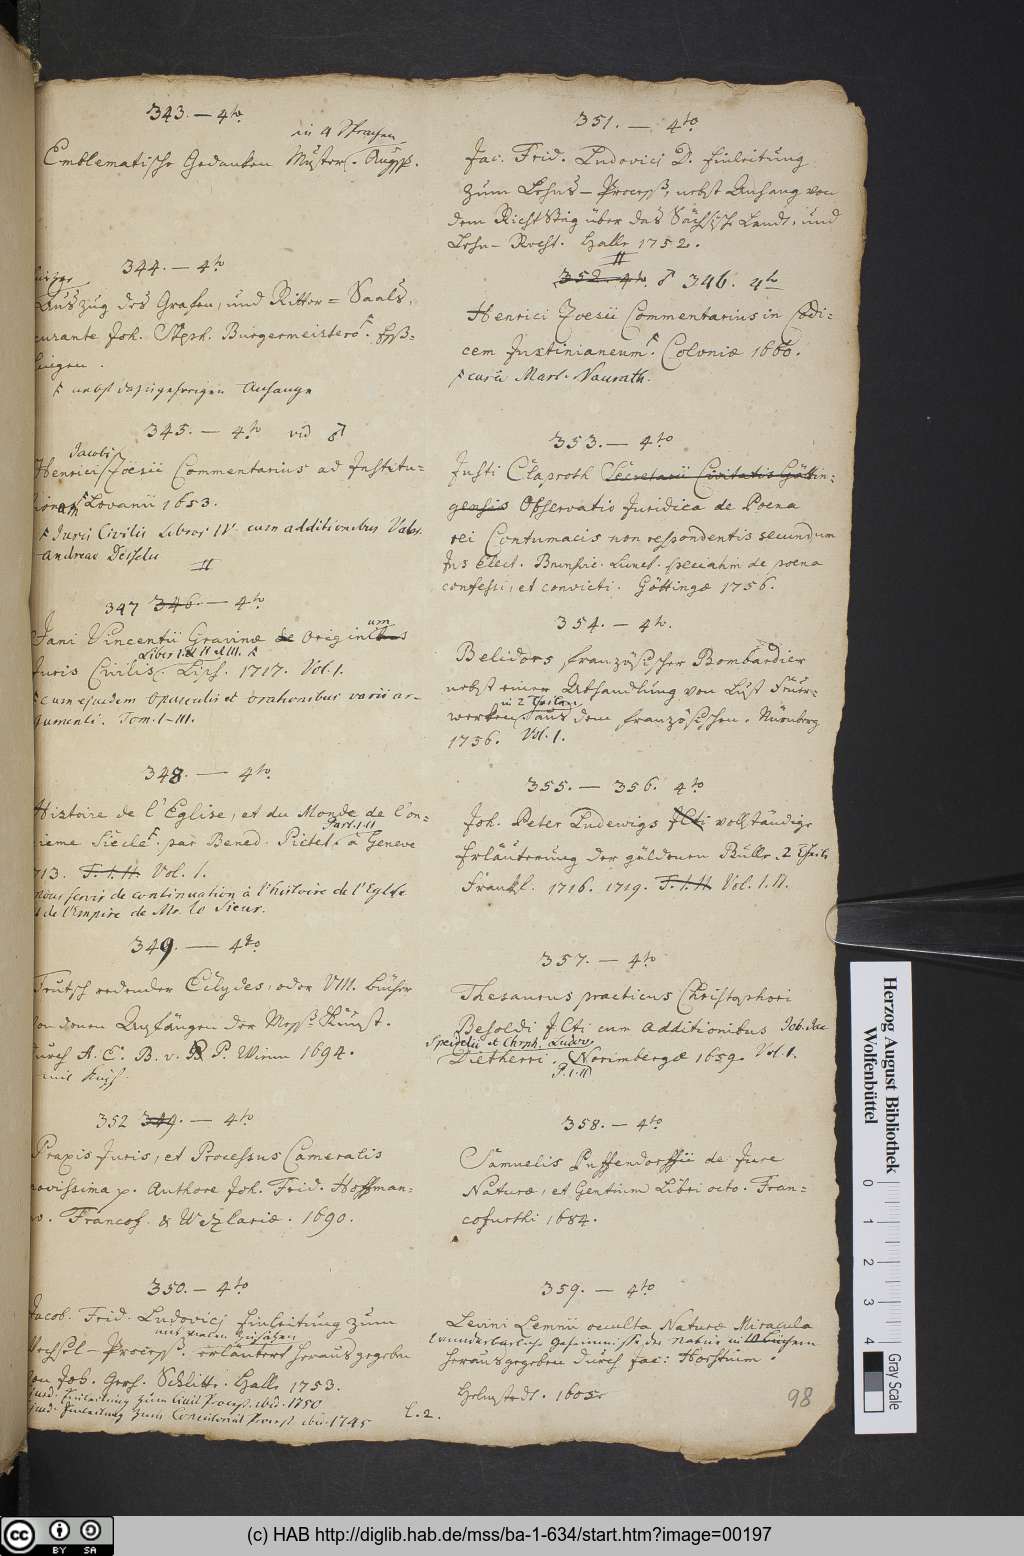 343. — 4to.
in 4 Sprachen
Emblematische Gedanken Muster.
344. — 4to
Auszug des Grafen, und Ritter = Saals,
curante Joh. Steph. Burgermeistero.
nebst dazu gehörigen Anhange
345. — 4to vid
Jacobi
Henrici Zoesii Commentarius ad Institu=
Lovanii 1653.
Juris Civilis Libros IV. cum additionibus Valer.
Andreae Desselii
II
347 346. — 4to
um
Jani Vincentii Gravinæ de Originibus
Liber I. II et III.
Juris Civilis. Lips. 1717. Vol. 1.
cum ejusdem Opusculis et Orationibus varii ar-
gumenti. Tom. I-III.
348. — 4to.
Histoire de l'Eglise, et du Monde de l'on=
Part. I. II
zieme Siecle par Bened. Pictet. à Geneve
713. T. I. II. Vol. 1.
pour servir de continuation à l'histoire de l'Eglise
et de l'Empire de Mr. le Sieur.
349. — 4to
Teutsch redender Eüclydes, oder VIII. Bücher
von denen Anfängen der Mess-Kunst.
durch A. E. B. v. P. Wienn 1694.
mit Kupf.
352 349. — 4to
Praxis Juris, et Processus Cameralis
novissima p. Authore Joh. Frid. Hoffman=
no. Francof. & Wezlariæ. 1690.
350. — 4to
Jacob. Frid. Ludovici Einleitung zum
mit vielen Zusätzen
Wechsel-Process. erläutert herausgegeben
von Joh. Gerh. Schlitte. Halle 1753.
Ejusd. Einleitung zum Civil Process. ibid. 1750
Ejusd. Einleitung zum Concursual Process ibid. 1745
l. 2.
351. — 4to
Jac. Frid. Ludovici D. Einleitung
zum Lehns-Process, nebst Anhang von
dem Richtsteig über das Sächsische Land, und
Lehn-Recht. Halle 1752.
II
352. 4to 346. 4to
Henrici Zoesii Commentarius in Codi=
cem Justinianeum. Coloniæ 1660.
cura Mart. Naurath.
353. — 4to
Justi Claproth Secretarii Civitatis Göttin=
gensis Observatio Juridica de Poena
rei Contumacis non respondentis secundum
Jus Elect. Brunsvic. Lunet. speciatim de poena
confessi, et convicti. Göttingæ 1756.
354. — 4to.
Belidors französischer Bombardier
nebst einer Abhandlung von Lust Feuer=
in 2 Theilen
werken. aus dem französischen. Nürnberg
1756. Vol. 1.
355. — 356. 4to
Joh. Peter Ludewigs JCti vollständige
Erläuterung der güldenen Bulle. 2 Theile
Frankf. 1716. 1719. T. I. II. Vol. I. II.
357. — 4to
Thesaurus practicus Christophori
Besoldi JCti cum Additionibus Joh. Jac
Speidelii et Chrph. Ludov.
Dietherri. Norimbergæ 1659. Vol. 1.
P. I. II
358. — 4to
Samuelis Puffendorffii de Jure
Naturæ, et Gentium Libri octo. Fran=
cofurthi 1684.
359. — 4to
Levini Lemnii occulta Naturæ Miracula
Wunderbarliche Geheimnisse der Natur in IV Büchern
herausgegeben durch Jac: Horstium.
Helmstedt. 1605
98
Herzog August Bibliothek
Wolfenbüttel
0 1 2 3 4
Gray Scale
cc BY SA
(c) HAB http://diglib.hab.de/mss/ba-1-634/start.htm?image=00197